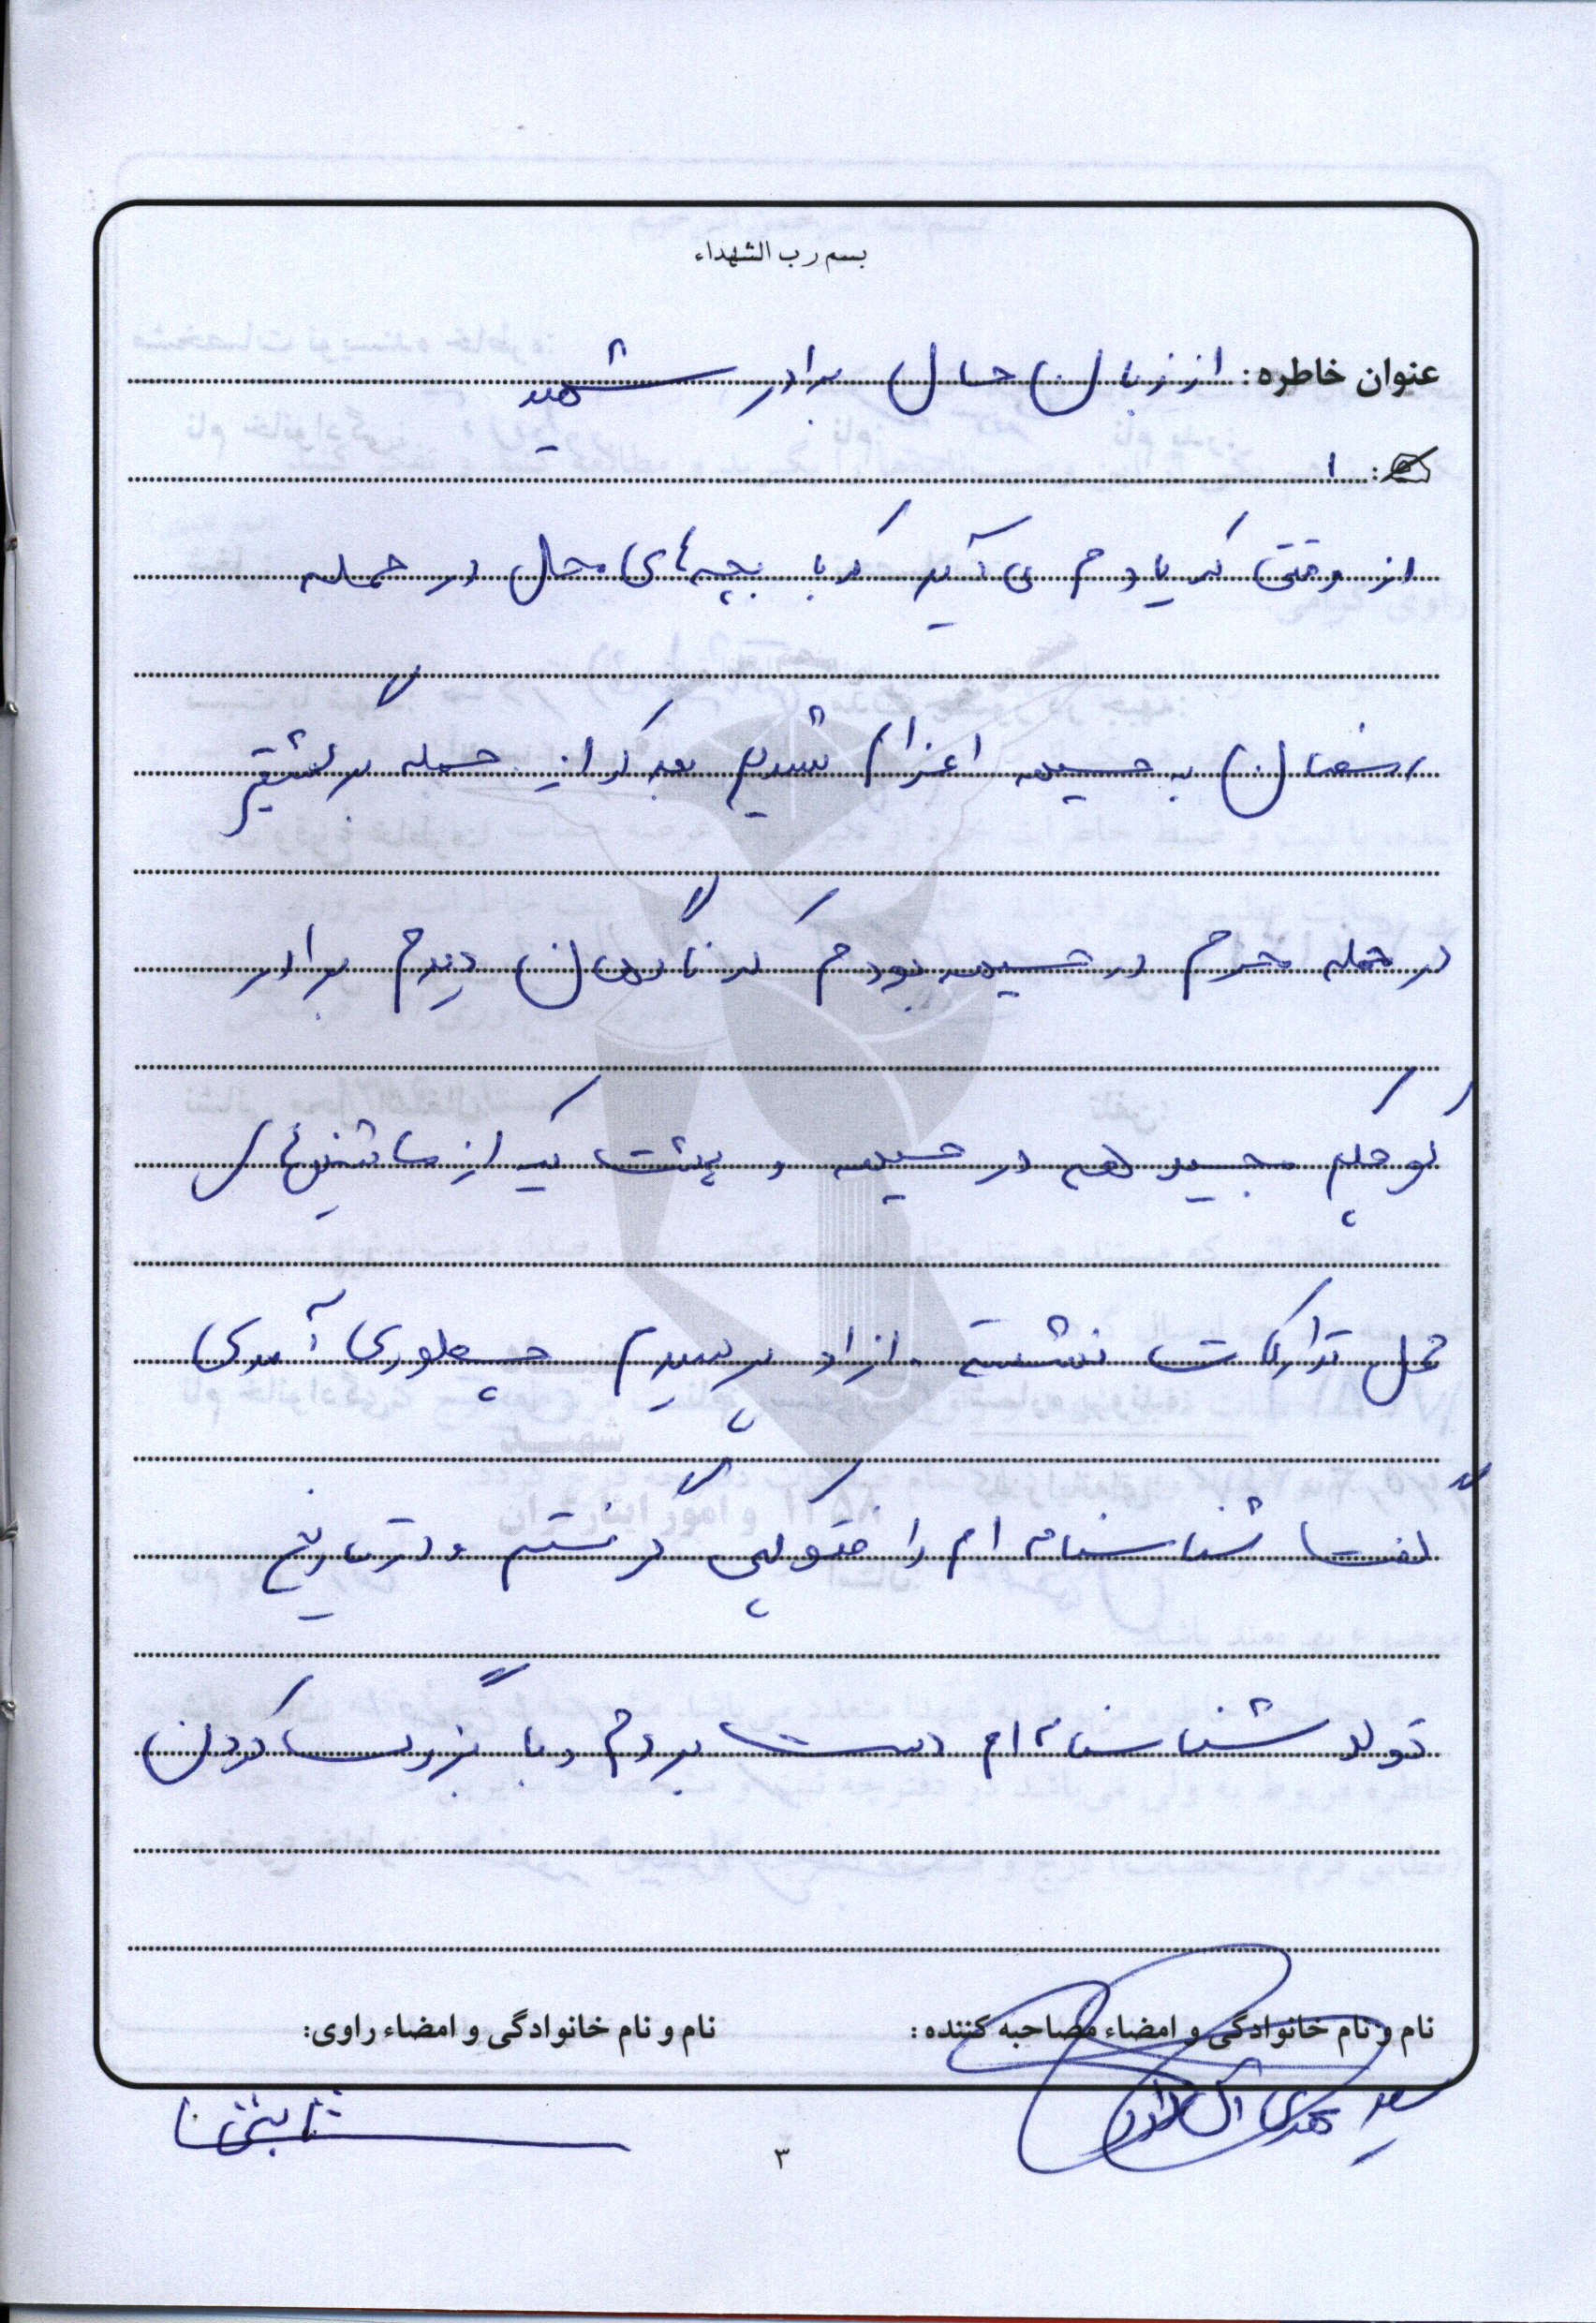 بسم رب الشهداء
عنوان خاطره: از زبان حال برادر شهید
: ۱
از وقتی که یادم می آید که با بچه های محل در حمله
رمضان به جبهه اعزام شدیم بعد که از حمله برگشتیم
در حمله محرم در جبهه بودم که ناگهان دیدم برادر
کوچکم مجید هم در جبهه و پشت یکی از ماشینهای
حمل تدارکات نشسته. از او پرسیدم چطوری آمدی
گفت شناسنامه ام را فتوکپی گرفتم و در تاریخ
تولد شناسنامه ام دست بردم و با بزرگ کردن
نام و نام خانوادگی و امضاء مصاحبه کننده: نام و نام خانوادگی و امضاء راوی:
سید مهدی
۳